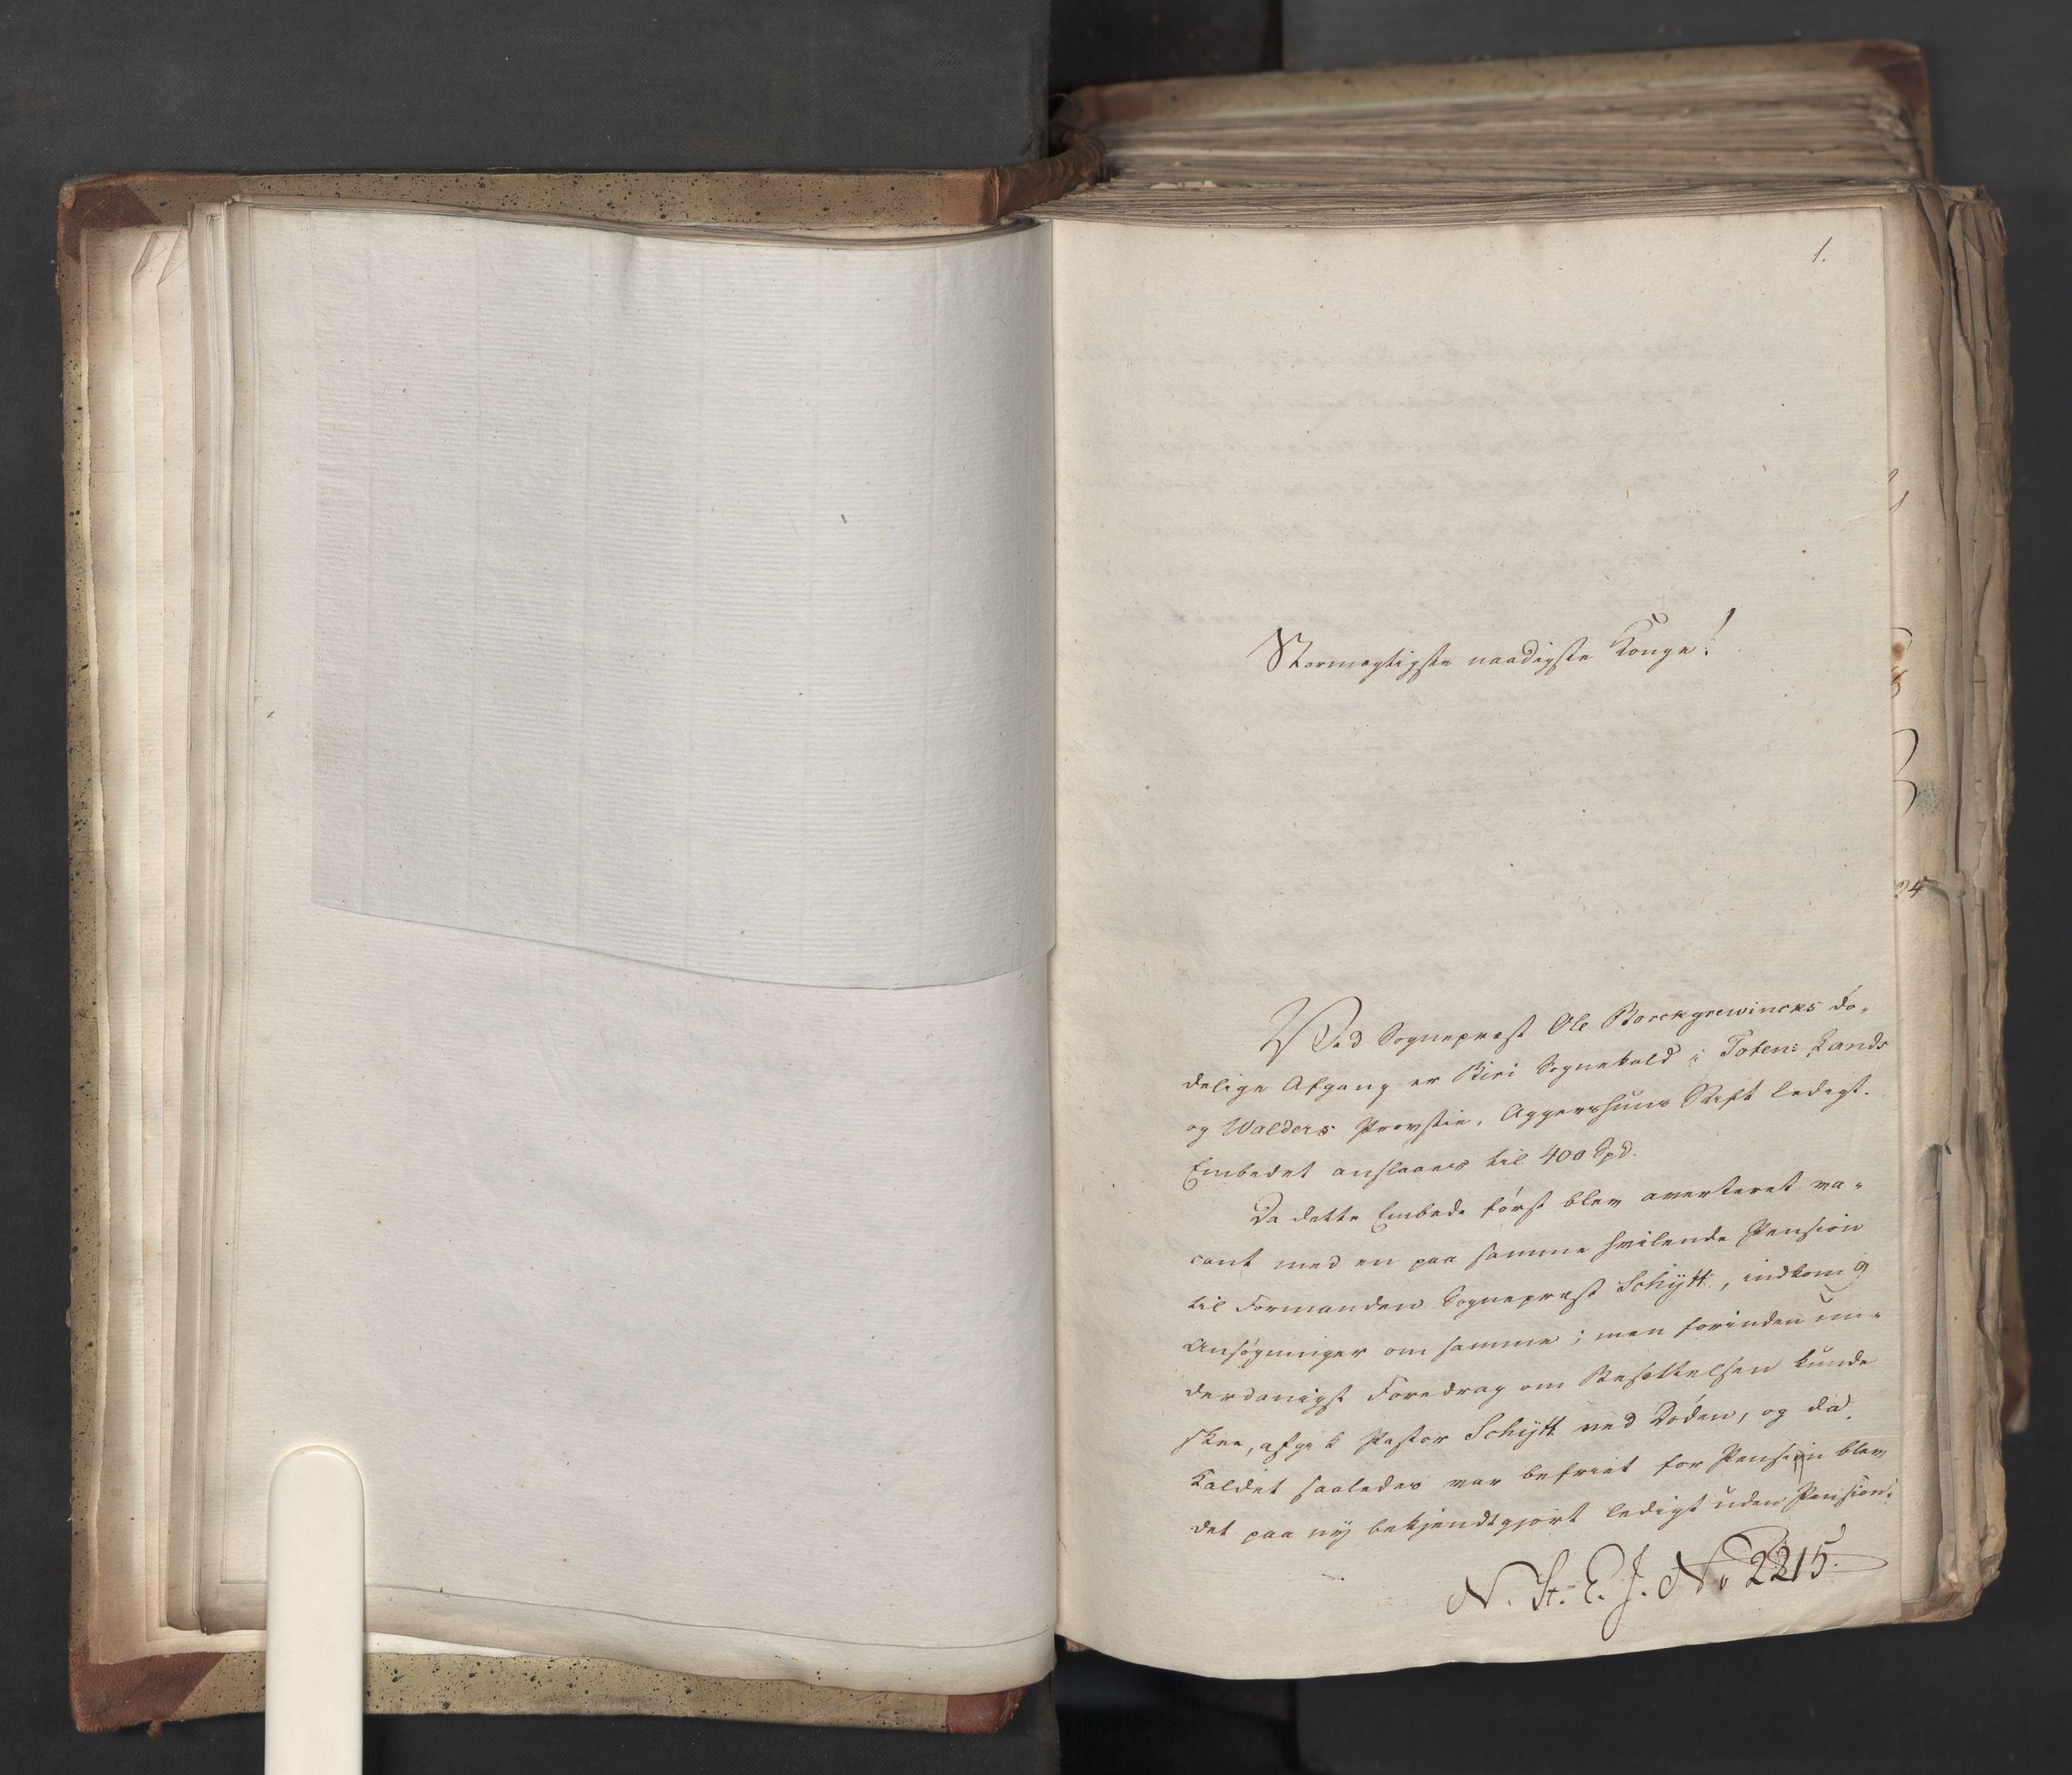 1.
Stormægtigste naadigste Konge!
Ved Sognepræst Ole Borchgrewincks dö-
delige Afgang er Biri Sognekald i Toten: Lands
og Walders Provstie, Aggershuus Stift ledigt.
Embedet anslaaes til 400 Spd.
Da dette Embede först blev averteret va-
cant med en paa samme hvilende Pension
til Formanden Sognepræst Schÿtt, indkom 9
Ansøgninger om samme; men forinden un-
derdanigst Foredrag om Besættelsen kunde
skee, afgik Pastor Schÿtt ved Döden, og da
Kaldet saaledes var befriet for Pension blev
det paa nÿ bekjendtgjort ledigt uden Pension.
N. St. E. J. No 2215.
24